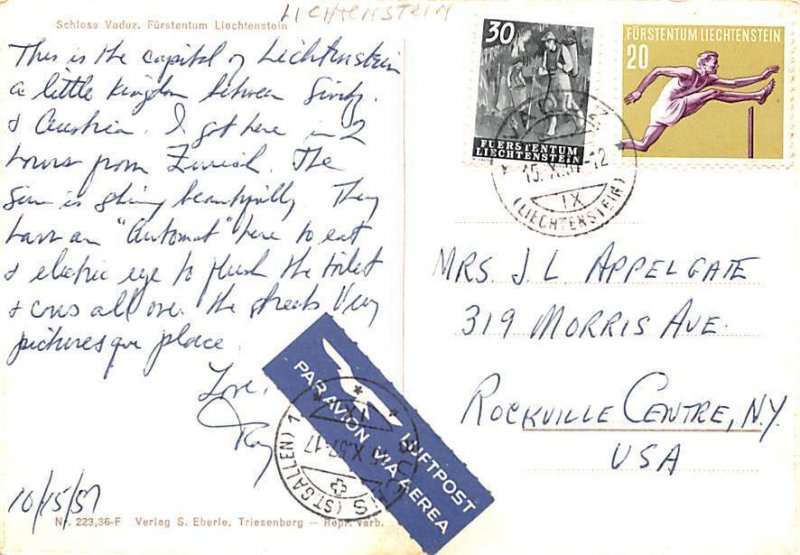 LICHTENSTEIN
Schloss Vaduz. Fürstentum Liechtenstein
This is the capital of Liechtenstein
a little kingdom between Switz.
& Austria. I got here in 2
hours from Zurich. The
Sun is shing beautifully They
have an "Automat" here to eat
& electric eye to flush the toilet
& cows all over the streets Very
picturesque place.
Love,
Ray
10/15/57
Nr. 223,36-F Verlag S. Eberle, Triesenberg — Repr. verb.
30
FUERSTENTUM
LIECHTENSTEIN
FÜRSTENTUM LIECHTENSTEIN
20
VADUZ
15.X.57-12
IX
(LIECHTENSTEIN)
MRS. J. L. APPELGATE
319 MORRIS AVE.
ROCKVILLE CENTRE, N.Y.
USA
LUFTPOST
PAR AVION VIA AEREA
(ST. GALLEN) 1
X.57-17